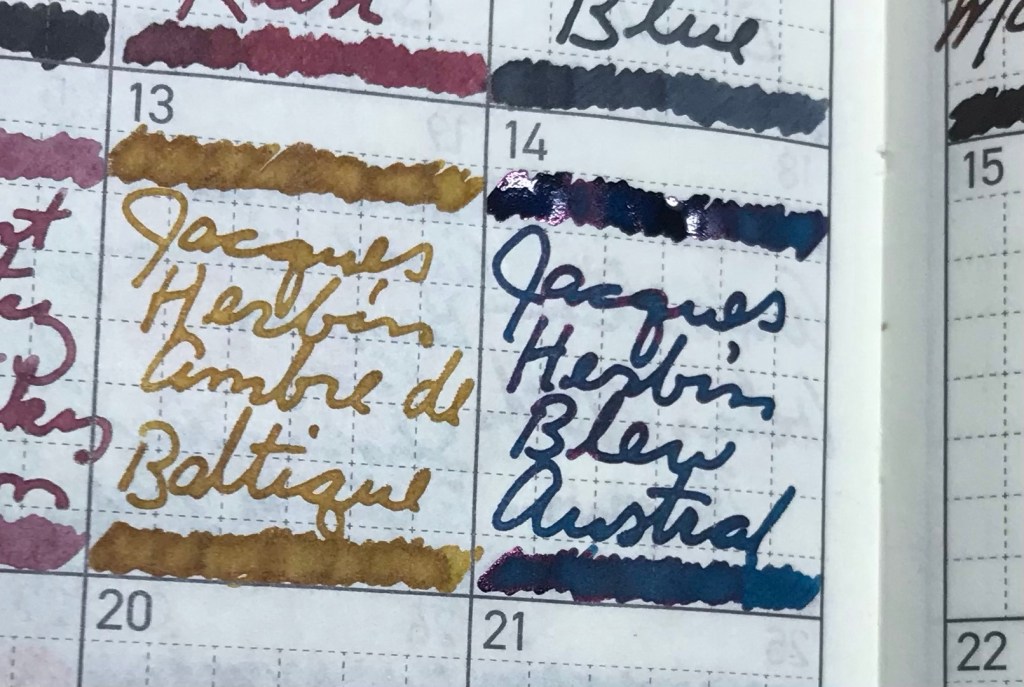 Blue
13
14
15
Jacques
Herbin
Ambre de
Baltique
Jacques
Herbin
Bleu
Austral
20
21
22